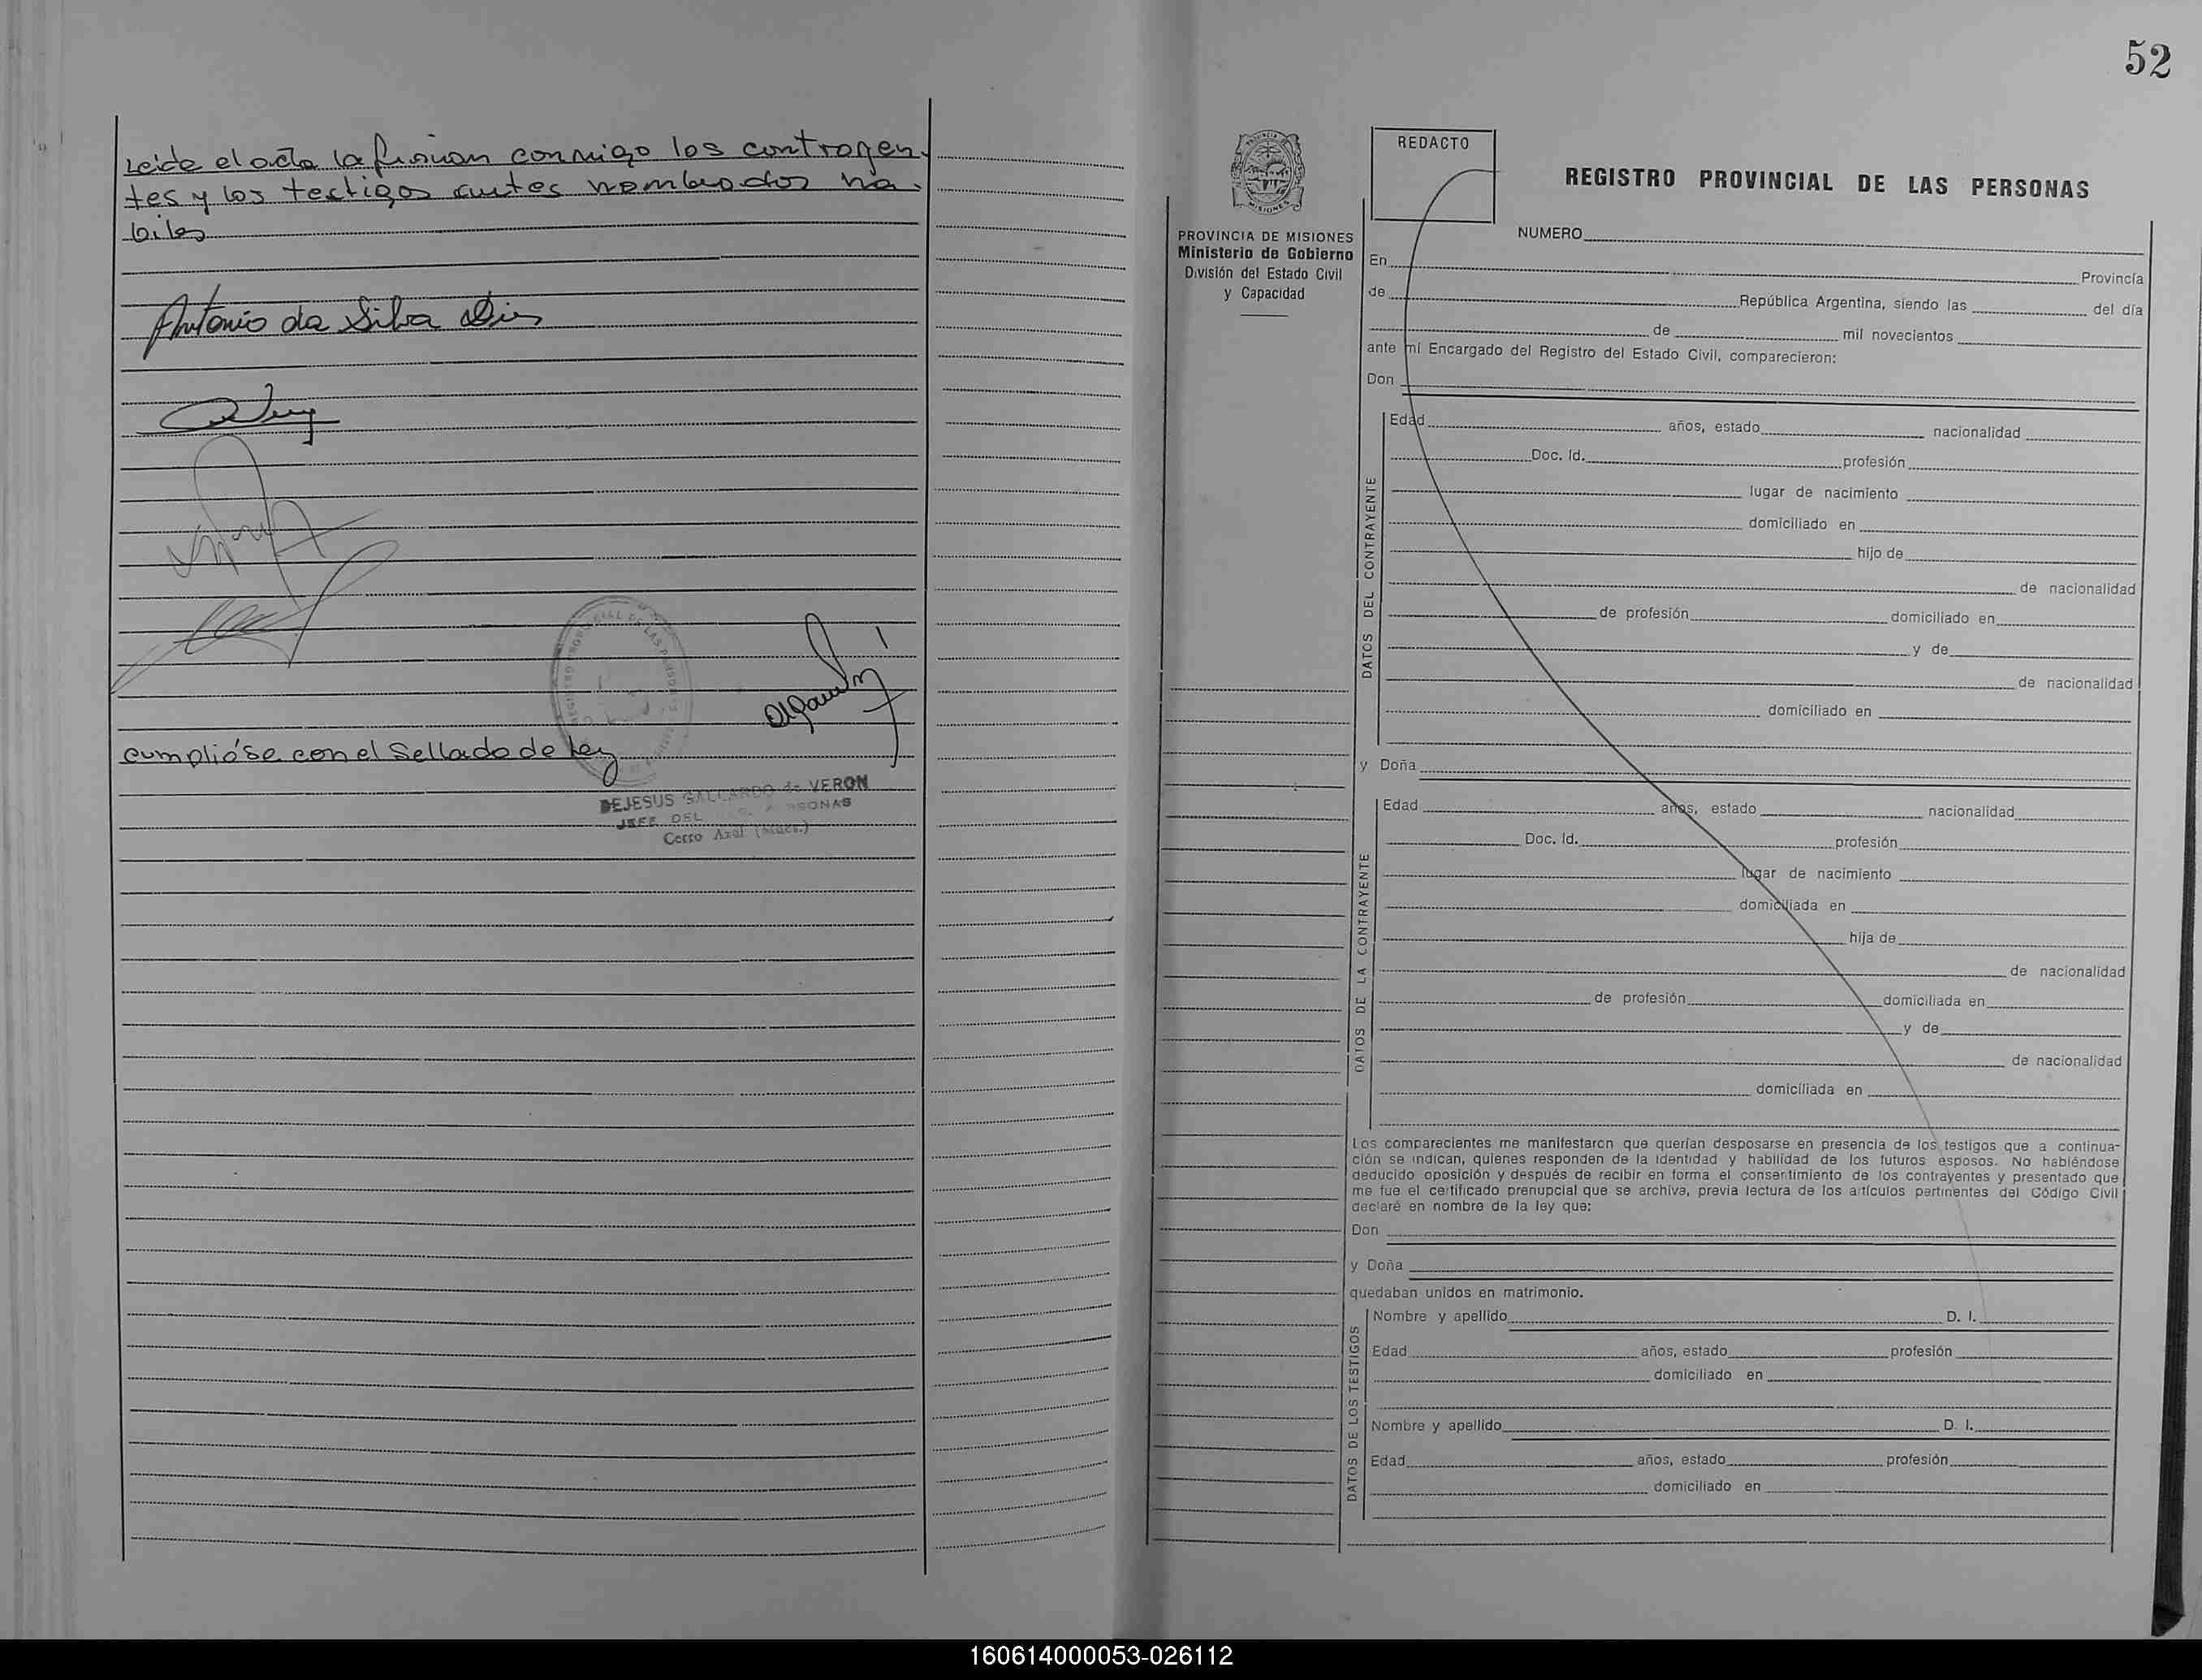 Leida el acta la firman conmigo los contrayen-
tes y los testigos antes nombrados há-
biles
Antonio da Silva
cumplióse con el Sellado de Ley
DEJESUS GALLARDO de VERON
JEFE DEL PERSONAS
Cerro Azul (Mnes.)
52
REDACTO
REGISTRO PROVINCIAL DE LAS PERSONAS
PROVINCIA DE MISIONES
Ministerio de Gobierno
División del Estado Civil
y Capacidad
NUMERO
En Provincia
de República Argentina, siendo las del día
de mil novecientos
ante mí Encargado del Registro del Estado Civil, comparecieron:
Don
DATOS DEL CONTRAYENTE
Edad años, estado nacionalidad
Doc. Id. profesión
lugar de nacimiento
domiciliado en
hijo de
de nacionalidad
de profesión domiciliado en
y de
de nacionalidad
domiciliado en
y Doña
DATOS DE LA CONTRAYENTE
Edad años, estado nacionalidad
Doc. Id. profesión
lugar de nacimiento
domiciliada en
hija de
de nacionalidad
de profesión domiciliada en
y de
de nacionalidad
domiciliada en
Los comparecientes me manifestaron que querían desposarse en presencia de los testigos que a continua-
ción se indican, quienes responden de la identidad y habilidad de los futuros esposos. No habiéndose
deducido oposición y después de recibir en forma el consentimiento de los contrayentes y presentado que
me fue el certificado prenupcial que se archiva, previa lectura de los artículos pertinentes del Código Civil
declaré en nombre de la ley que:
Don
y Doña
quedaban unidos en matrimonio.
DATOS DE LOS TESTIGOS
Nombre y apellido D. I.
Edad años, estado profesión
domiciliado en
Nombre y apellido D. I.
Edad años, estado profesión
domiciliado en
160614000053-026112